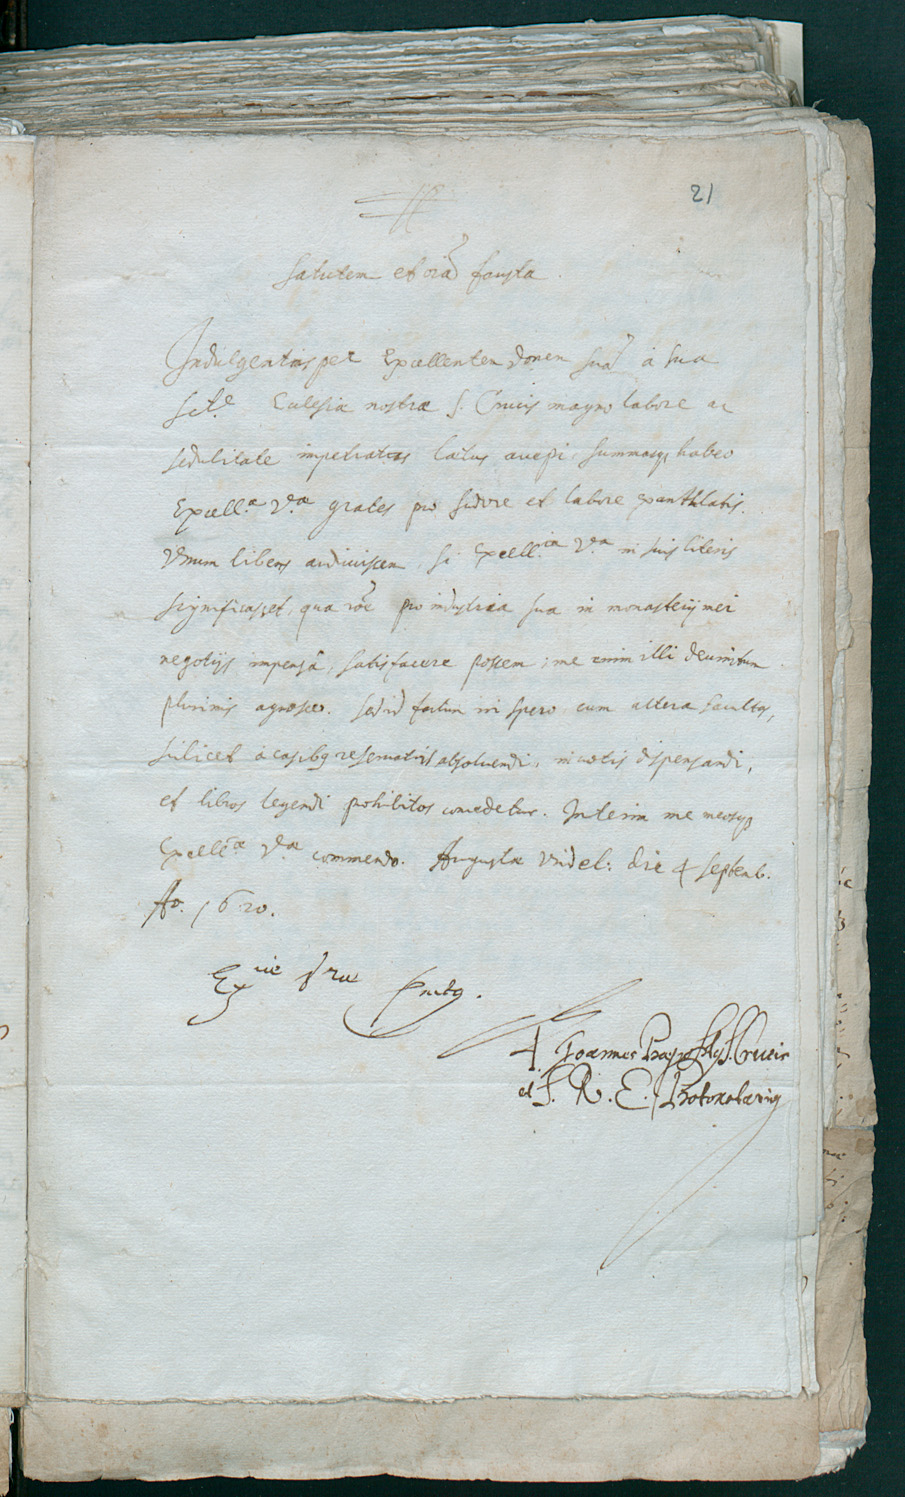 21
Salutem et oīa fausta.
Indulgentias per Excellentem Donem suā à sua
Sct.e Eclesiæ nostræ S. Crucis magno labore ac
sedulitate impetratas lætus accepi, summasq; habeo
Excell.æ V.æ grates pro sudore et labore exanthlatis.
Vnum libens audiuissem, si Excell.ia V.a in suis literis
significasset, qua rōe pro industria sua in monasterij mei
negotijs impensâ, satisfacere possem, me enim illi deuinctum
plurimis agnosco. Sed id factum iri spero cum altera facultas,
scilicet à casibq reseruatis absoluendi, in uotis dispensandi,
et libros legendi prohibitos concedetur. Interim me meosq;
Excell.æ V.æ commendo. Augustæ Vindel: die 4 Septemb.
Ao. 1620.
Ex.iæ Vræ
Joannes Præps. S. Crucis
et S. R. E. Protonotarius